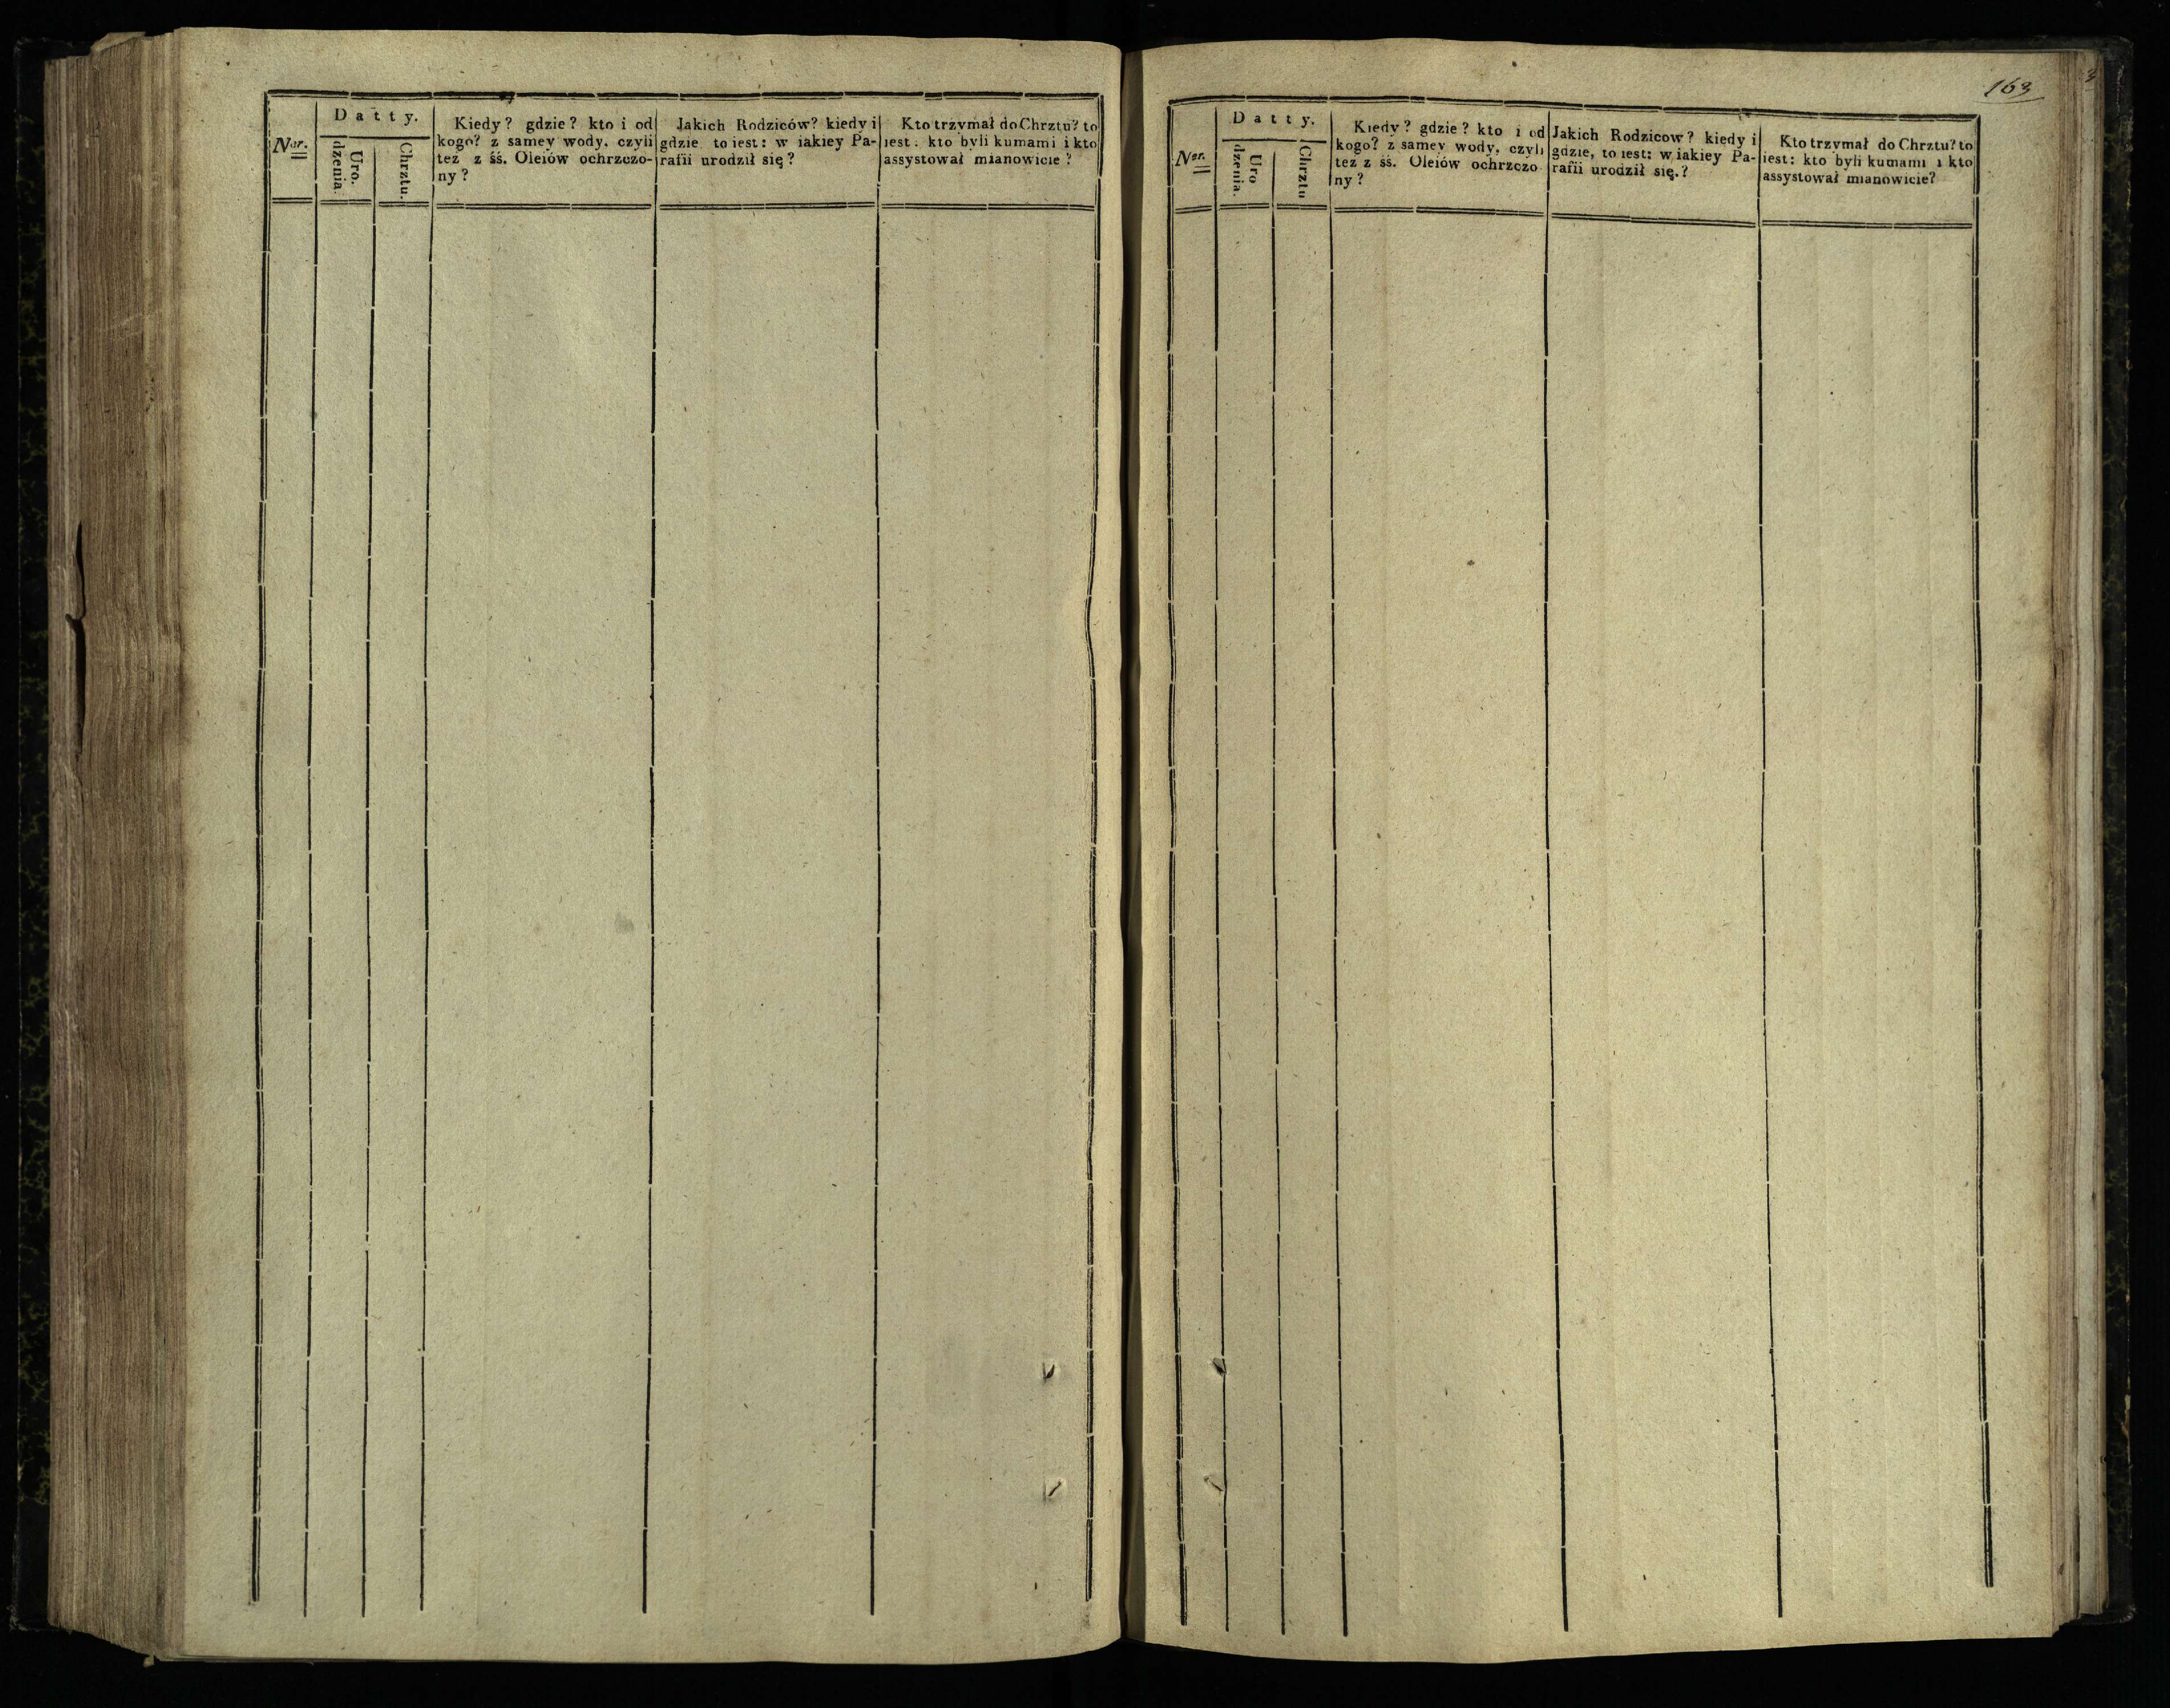 Ner.
Datty.
Uro.
dzenia.
Chrztu.
Kiedy? gdzie? kto i od
kogo? z samey wody, czyli
tez z śś. Oleiów ochrzczo-
ny?
Jakich Rodziców? kiedy i
gdzie to iest: w iakiey Pa-
rafii urodził się?
Kto trzymał do Chrztu? to
iest: kto byli kumami i kto
assystował mianowicie?
163
Ner.
Datty.
Uro
dzenia.
Chrztu
Kiedy? gdzie? kto i od
kogo? z samey wody, czyli
tez z śś. Oleiów ochrzczo
ny?
Jakich Rodzicow? kiedy i
gdzie, to iest: w iakiey Pa-
rafii urodził się.?
Kto trzymał do Chrztu? to
iest: kto byli kumami i kto
assystował mianowicie?